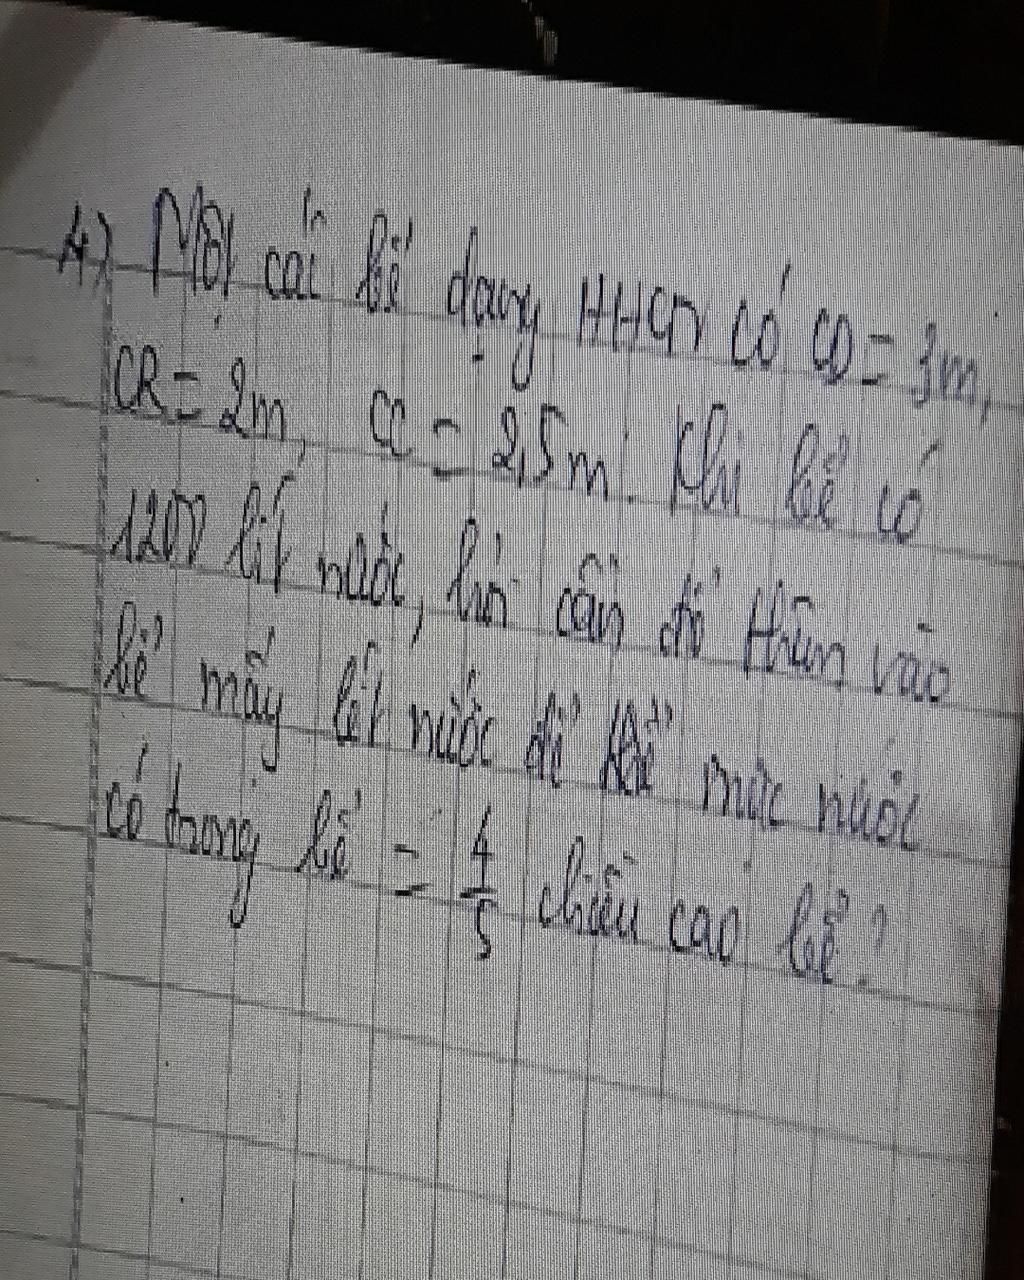 4) Một cái bể dạng HHCN có CD = 3m,
CR = 2m, CC = 2,5m. Khi bể có
1200 lít nước, hỏi cần đổ thêm vào
bể mấy lít nước để mức nước
có trong bể = 4/5 chiều cao bể?